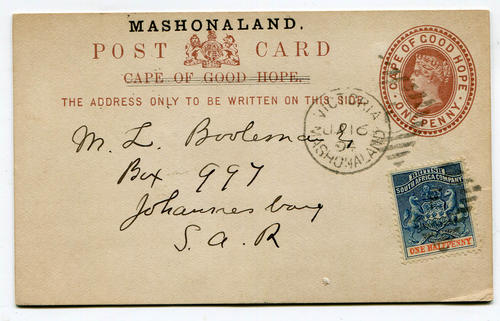 MASHONALAND.
POST CARD
CAPE OF GOOD HOPE.
THE ADDRESS ONLY TO BE WRITTEN ON THIS SIDE.
CAPE OF GOOD HOPE
ONE PENNY.
VICTORIA
16
MASHONALAND
M. L. Booleman
Box 997
Johannesburg
S. A. R
BRITISH
SOUTH AFRICA COMPANY
ONE HALFPENNY